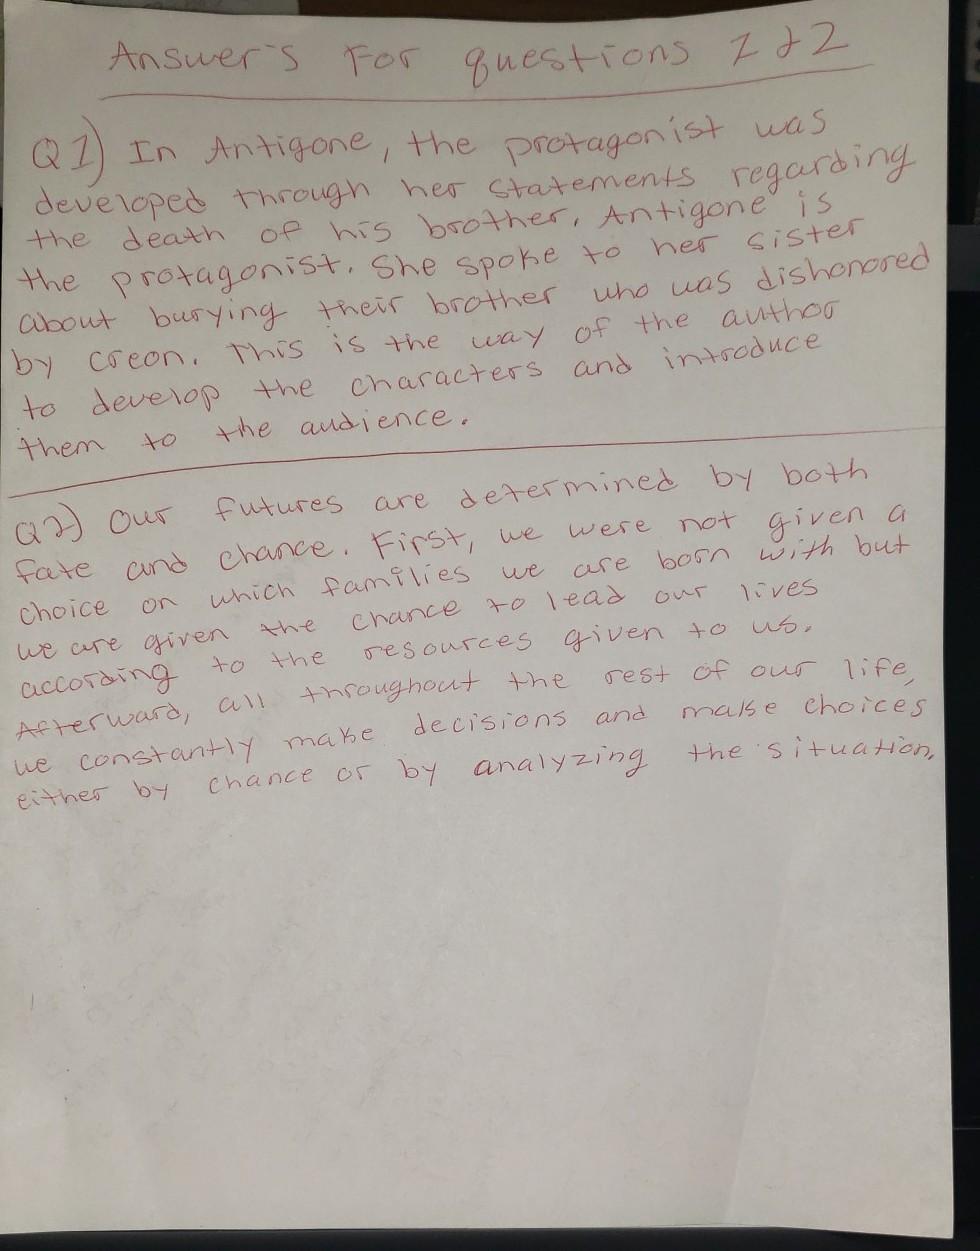 Answer's For questions 1 & 2
Q1) In Antigone, the protagonist was
developed through her statements regarding
the death of his brother. Antigone is
the protagonist. She spoke to her sister
about burying their brother who was dishonored
by Creon. This is the way of the author
to develop the characters and introduce
them to the audience.
Q2) Our futures are determined by both
fate and chance. First, we were not given a
choice on which families we are born with but
we are given the chance to lead our lives
according to the resources given to us.
Afterward, all throughout the rest of our life,
we constantly make decisions and make choices
either by chance or by analyzing the situation.